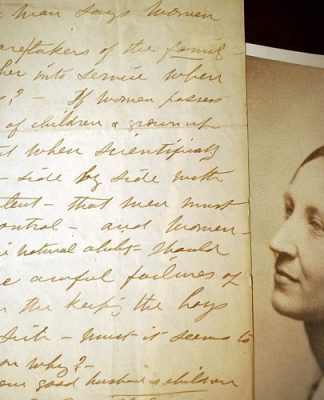 man says women
caretakers of the family -
her into service when
? - If women possess
of children & grown up
when scientifically
- side by side with
- that men must
control - and women -
natural ability should
awful failures of
the keep'g the boys
- must it seems to
or why? -
our good husbands & children